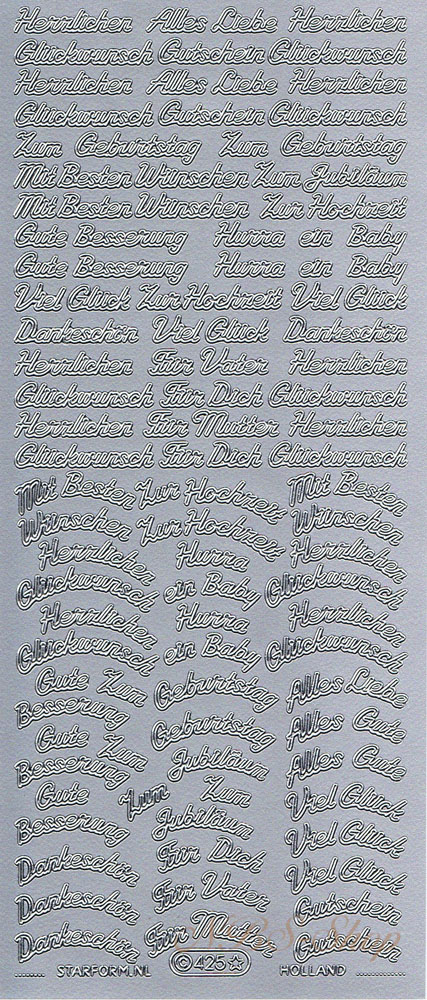 Herzlichen Alles Liebe Herzlichen
Glückwunsch Gutschein Glückwunsch
Herzlichen Alles Liebe Herzlichen
Glückwunsch Gutschein Glückwunsch
Zum Geburtstag Zum Geburtstag
Mit Besten Wünschen Zum Jubiläum
Mit Besten Wünschen Zur Hochzeit
Gute Besserung Hurra ein Baby
Gute Besserung Hurra ein Baby
Viel Glück Zur Hochzeit Viel Glück
Dankeschön Viel Glück Dankeschön
Herzlichen Für Vater Herzlichen
Glückwunsch Für Dich Glückwunsch
Herzlichen Für Mutter Herzlichen
Glückwunsch Für Dich Glückwunsch
Mit Besten Zur Hochzeit Mit Besten
Wünschen Zur Hochzeit Wünschen
Herzlichen Hurra Herzlichen
Glückwunsch ein Baby Glückwunsch
Herzlichen Hurra Herzlichen
Glückwunsch ein Baby Glückwunsch
Gute Zum Geburtstag Alles Liebe
Besserung Geburtstag Alles Gute
Gute Zum Jubiläum Alles Gute
Besserung Zum Zum
Gute Jubiläum Viel Glück
Besserung Für Dich Viel Glück
Dankeschön Für Vater Viel Glück
Dankeschön Für Mutter Gutschein
Dankeschön Gutschein
STARFORM.NL © 425 ☆ HOLLAND